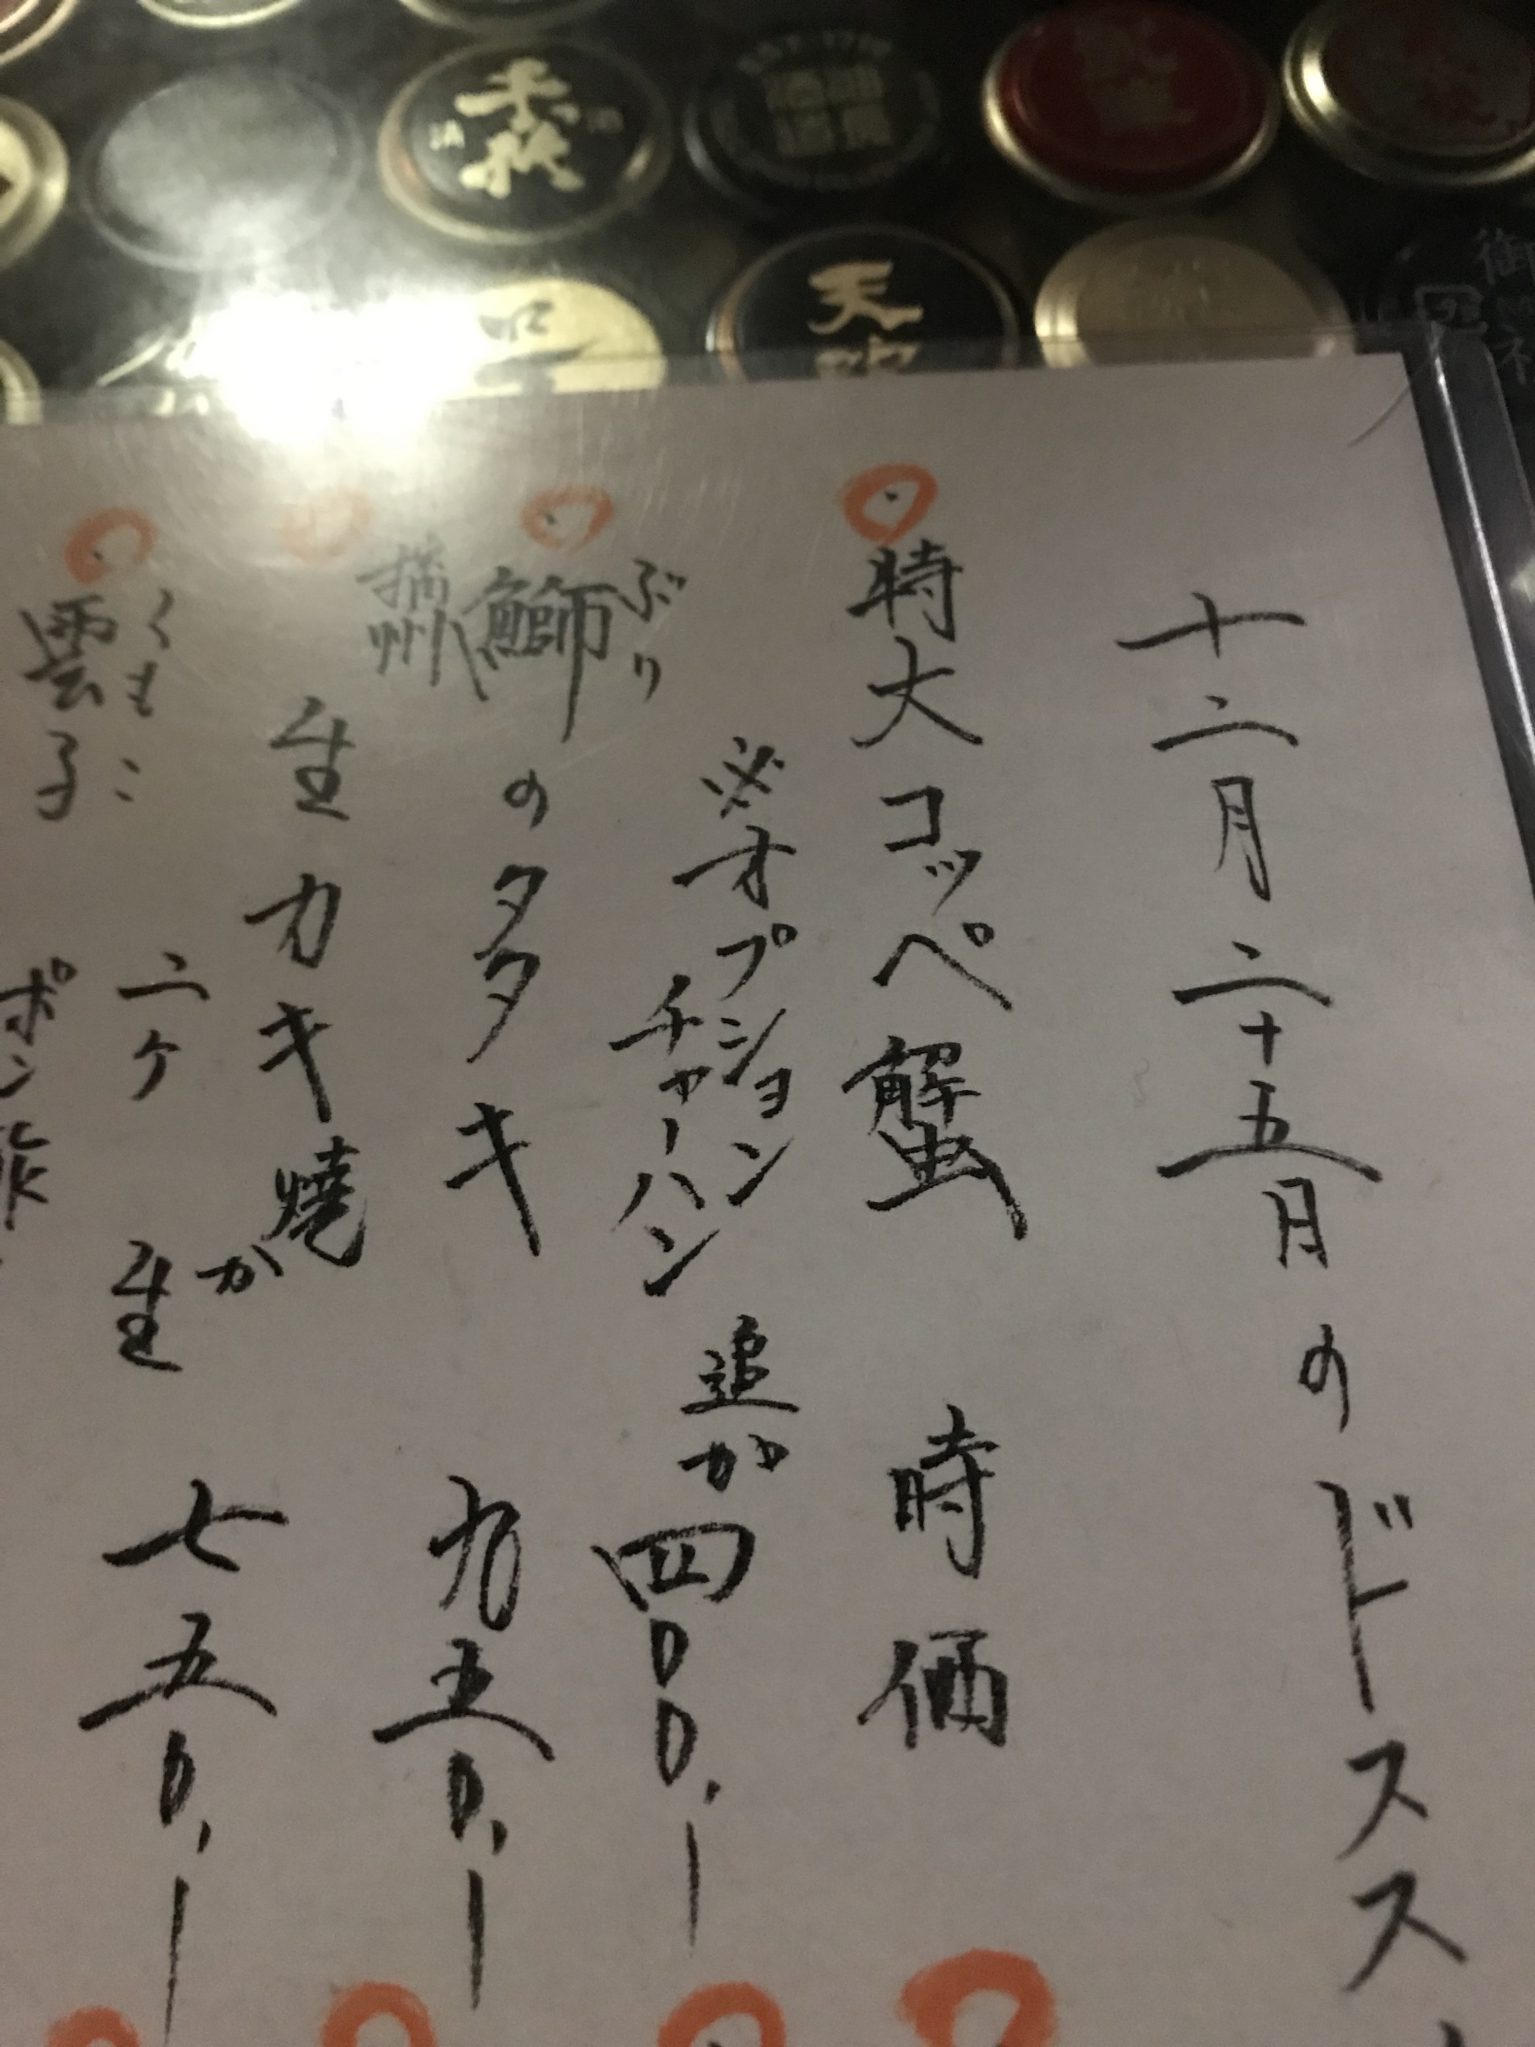 十二月二十五日のドスス
特大コッペ蟹 時価
※オプション
チャーハン 追加 四〇〇.ー
ぶり
鰤のタタキ 九五〇.ー
播州
生カキ 焼か生
二ケ 七五〇.ー
くもこ
雲子
ポン酢
天吹